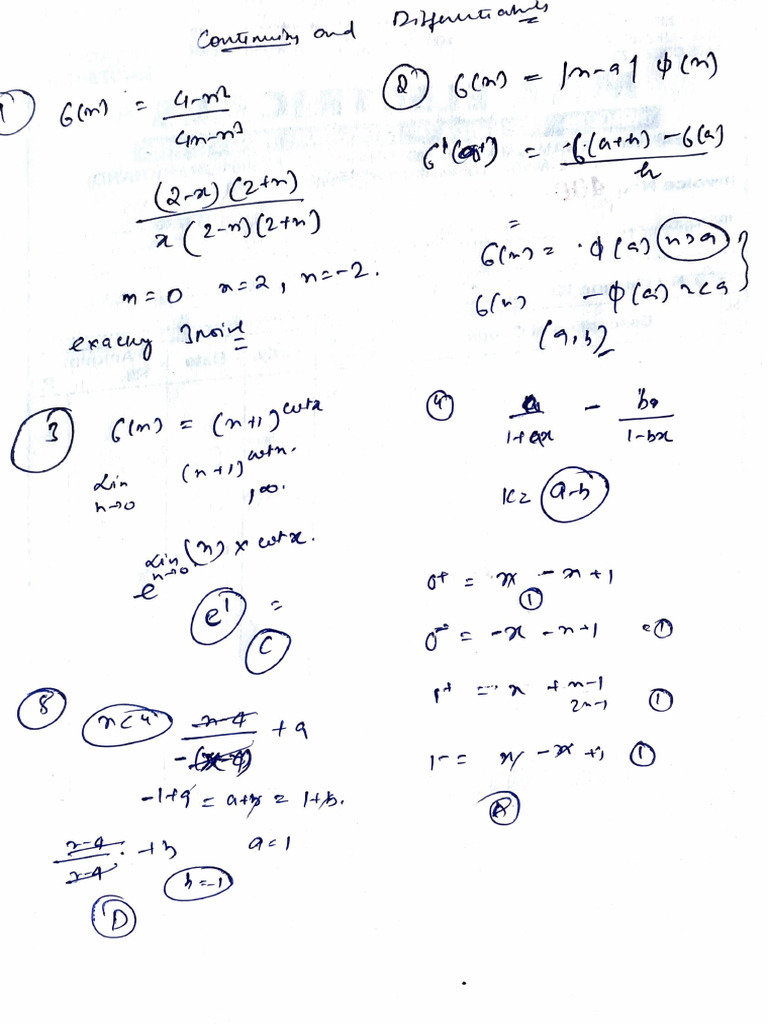 Continuity and Differentiability
1 f(x) = 4-x² / 4x-x³
(2-x)(2+x) / x(2-x)(2+x)
x=0 x=2, x=-2.
exactly 3 point
2 f(x) = |x-a| ϕ(x)
f'(a+) = f(a+h) - f(a) / h
=
f(x) = ϕ(a) x>a
f(x) -ϕ(a) x<a
(a,b)
3 f(x) = (x+1)^cotx
Lim x→0 (x+1)^cotx.
1^∞.
e^Lim x→0 (x) × cotx.
e¹ =
C
4 a / 1+ax - b / 1-bx
K= a-b
0+ = x -x+1 1
0- = -x -x+1 =1
1+ = x +x-1 2x-1 1
1- = x -x+1 1
A
8 x<4 x-4 / -(x-4) +a
-1+a = a+b = 1+b.
x-4 / x-4 +b a=1
b=-1
D